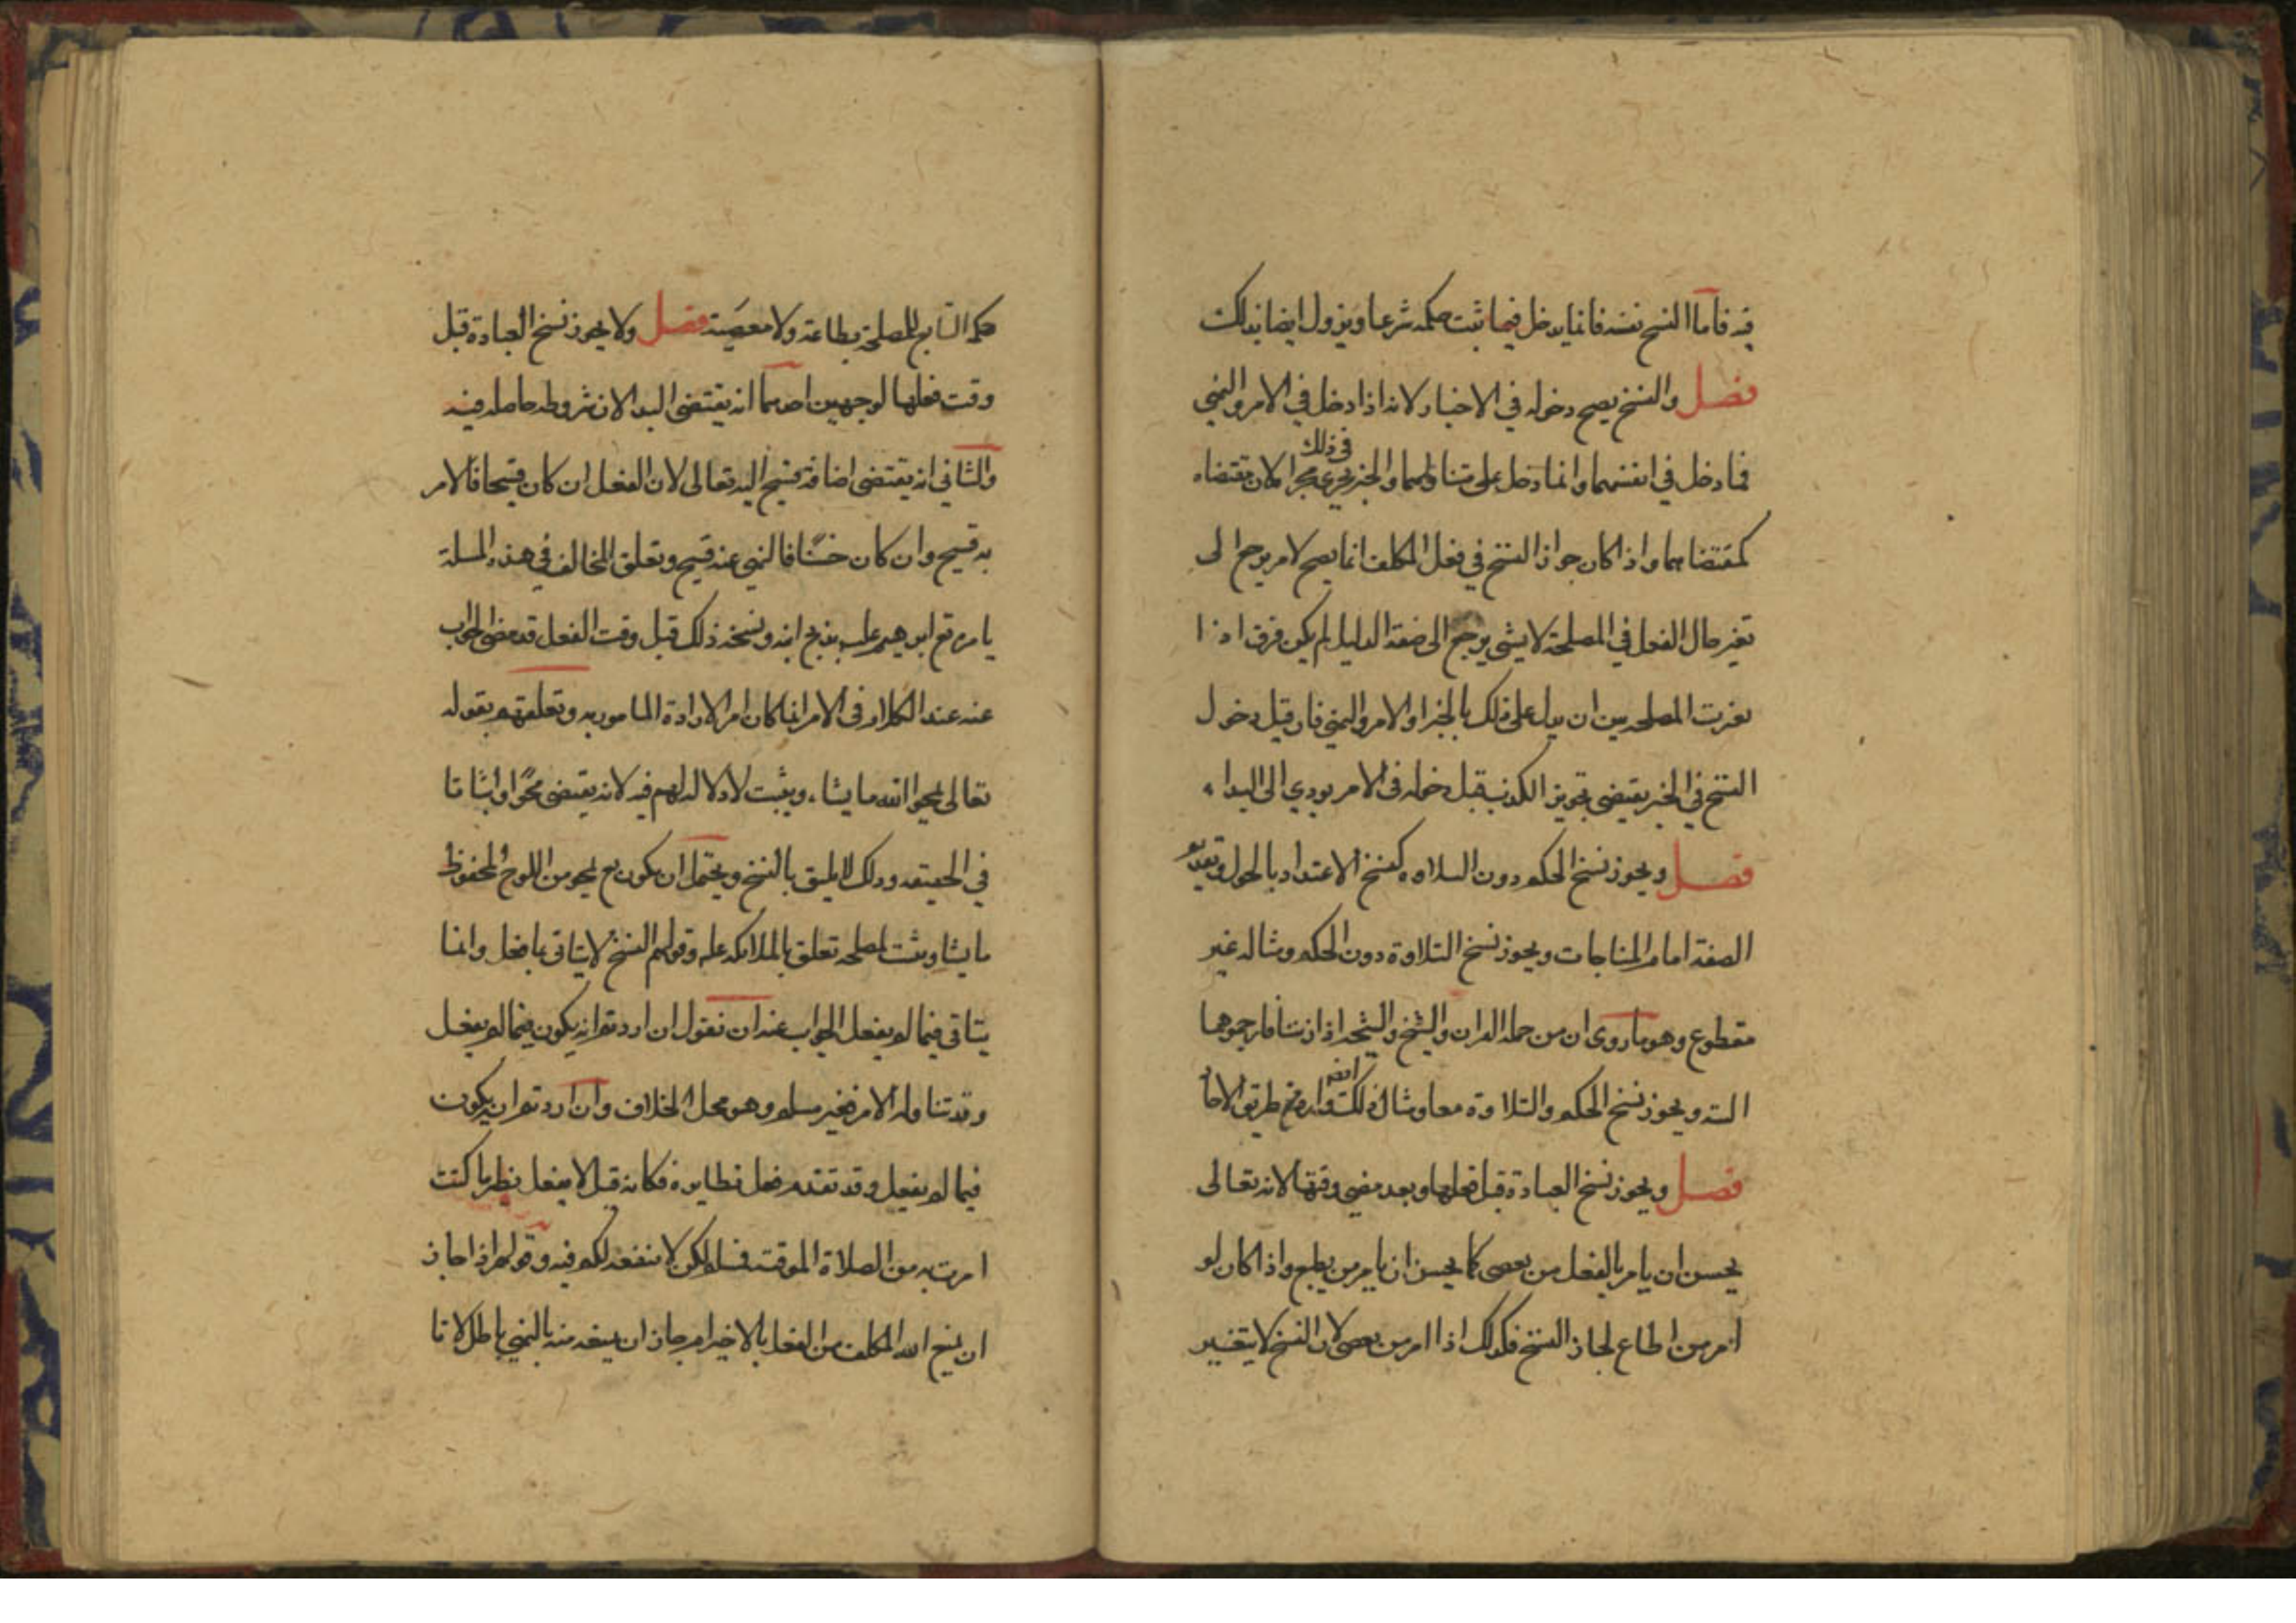 فيه فاما النسخ نفسه فانما يدخل فيما ثبت حكمه شرعا ويزول ايضا بذلك
فصل والنسخ يصح دخوله في الاخبار لانه اذا دخل في الامر والنهي
فما دخل في انفسهما وانما دخل على متناولهما والخبر يجري مجراه لان مقتضاه
في ذلك
كمقتضاهما واذا كان جواز النسخ في فعل المكلف انما يصح لامر يرجع الى
تغير حال الفعل في المصلحة لا لشي يرجع الى صفة الدليل لم يكن فرق اذا
تغيرت المصلحه بين ان يدل على ذلك بالخبر او الامر والنهي فان قيل دخول
النسخ في الخبر يقتضي تجويز الكذب قيل دخوله في الامر يودي الى البداء
فصل ويجوز نسخ الحكم دون التلاوه كنسخ الاعتداد بالحول وتقديم
الصدقة امام المناجات ويجوز نسخ التلاوة دون الحكم ومثاله غير
مقطوع وهو ما روى ان من جمله القران والشيخ والشيخه اذا زنيا فارجموهما
البته ويجوز نسخ الحكم والتلاوة معا ومثال ذلك ورد من طريق الاحاد
ايضا
فصل ويجوز نسخ العبادة قبل فعلها وبعد مضي وقتها لانه تعالى
يحسن ان يامر بالفعل من يعصى كما يحسن ان يامر من يطيع واذا كان لو
امر من اطاع لجاز النسخ فكذلك اذا امر من يعصى لان النسخ لا يتغير
حكمه التابع للمصلحة بطاعة ولا معصية فصل ولا يجوز نسخ العبادة قبل
وقت فعلها لوجهين احدهما انه يقتضي البدا لان شروطه حاصله فيه
والثاني انه يقتضى اضافة قبيح اليه تعالى لان الفعل ان كان قبيحا فالامر
به قبيح وان كان حسنا فالنهي عنه قبيح وتعلق المخالف في هذه المسلة
بامره تع ابرهيم علي بذبح ابنه ونسخه ذلك قبل وقت الفعل قد مضى الجواب
عنه عند الكلام فى الامر انما كان امر الارادة المامور به وتعلقهم بقوله
تعالى يمحوا الله ما يشاء ويثبت لا دلالة لهم فيه لانه يقتضى محوا واثباتا
في الحقيقه وذلك لا يليق بالنسخ ويحتمل ان يكون تع يمحو من اللوح المحفوظ
ما يشا ويثبت لمصلحه تعلق بالملائكه علم وقولهم النسخ لا يتاتى بما فعل وانما
يتاتى فيما لم يفعل الجواب عنه ان نقول ان اردتم انه يكون فيما لم يفعل
وقد تناوله الامر فغير مسلم وهو محل الخلاف وان اردتم انه يكون
فيما لم يفعل وقد تقدم فعل نظايره فكانه قيل لا يفعل نظير ما كنت
امرت به من الصلاة الموقته فسلم لكن لا منفعه لكم فيه وقولهم اذا جاز
ان يمنع الله المكلف من الفعل بالاخترام جاز ان يمنعه منه بالنهي باطل لانا